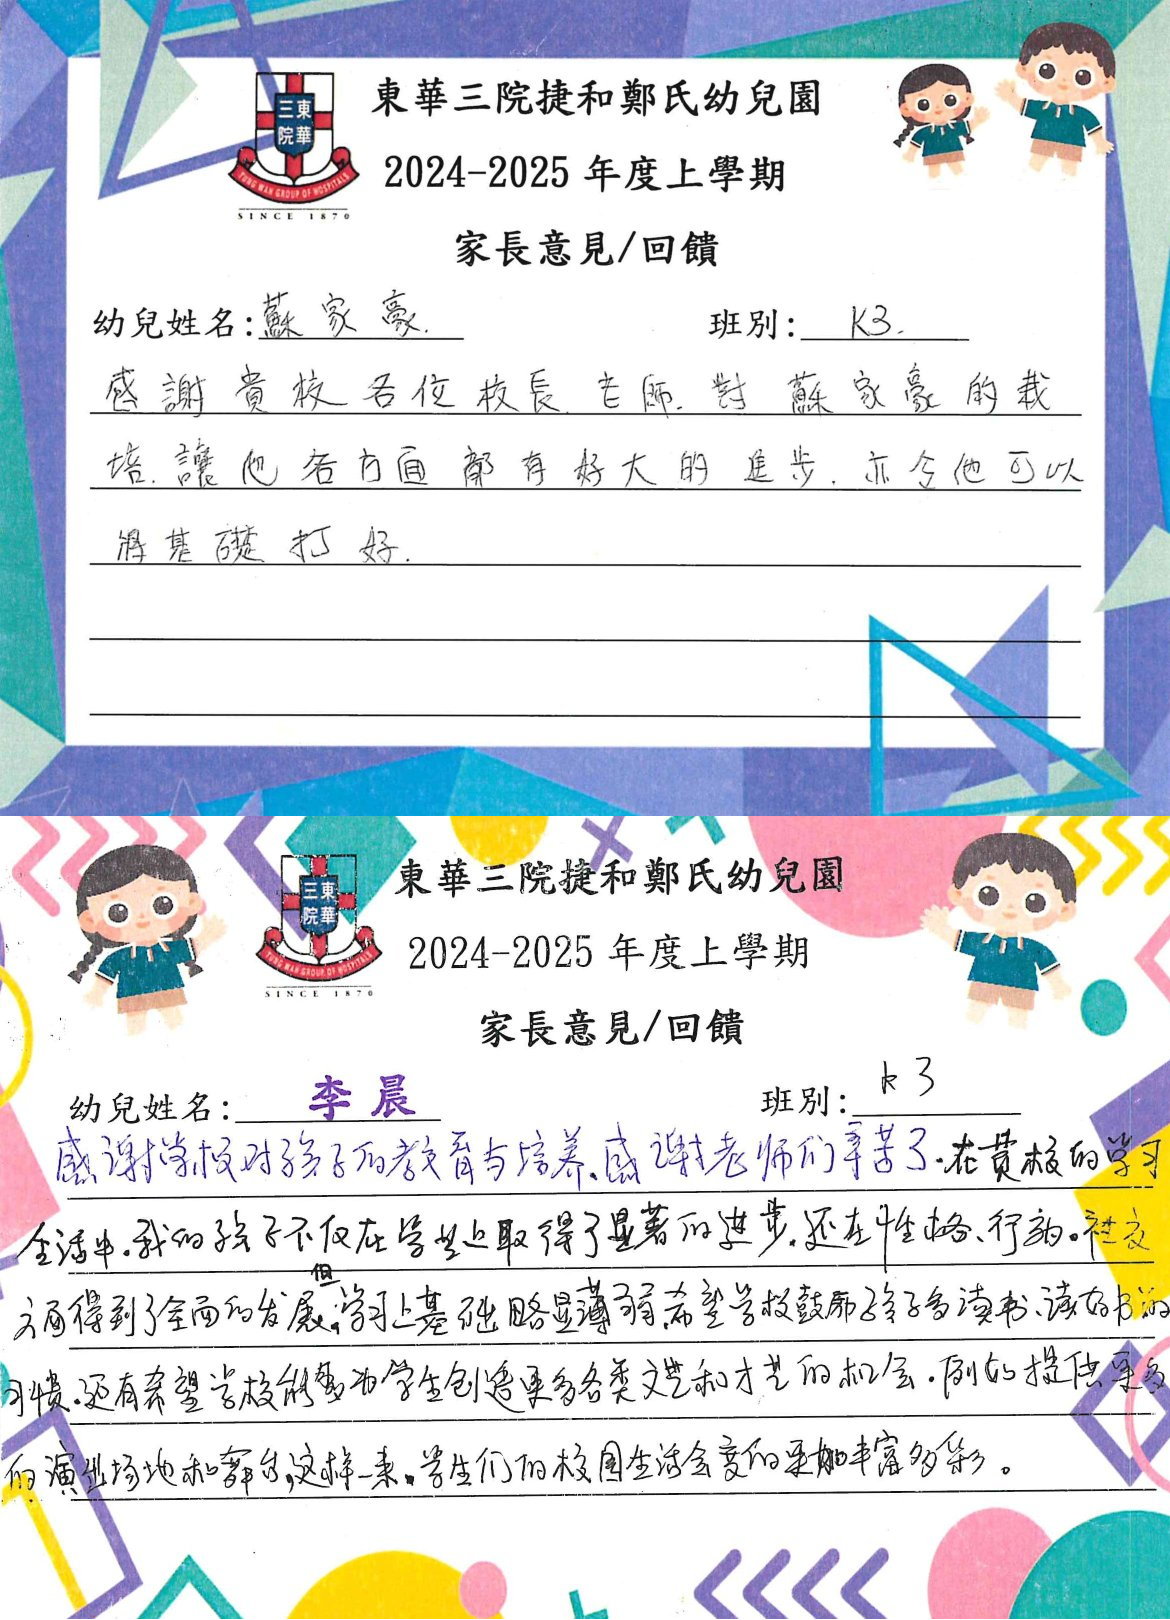 東華三院捷和鄭氏幼兒園
三東
院華
TUNG WAH GROUP OF HOSPITALS
SINCE 1870
2024-2025 年度上學期
家長意見/回饋
幼兒姓名:蘇家豪. 班別: K3.
感謝貴校各位校長.老師.對蘇家豪的栽
培.讓他各方面都有好大的進步.亦令他可以
將基礎打好.
東華三院捷和鄭氏幼兒園
三東
院華
TUNG WAH GROUP OF HOSPITALS
SINCE 1870
2024-2025 年度上學期
家長意見/回饋
幼兒姓名: 李晨 班別: K3
感谢学校对孩子的教育与培养.感谢老师们辛苦了.在貴校的学习
生活中.我的孩子不仅在学业上取得了显著的进步.还在性格、行为。社交
方面得到了全面的发展.但学习上基础略显薄弱.希望学校鼓励孩子多读书.读好书的
习惯.还有希望学校能够为学生创造更多各类文艺和才艺的机会.例如提供更多
的演出场地和舞台,这样一来.学生们的校园生活会变的更加丰富多彩。